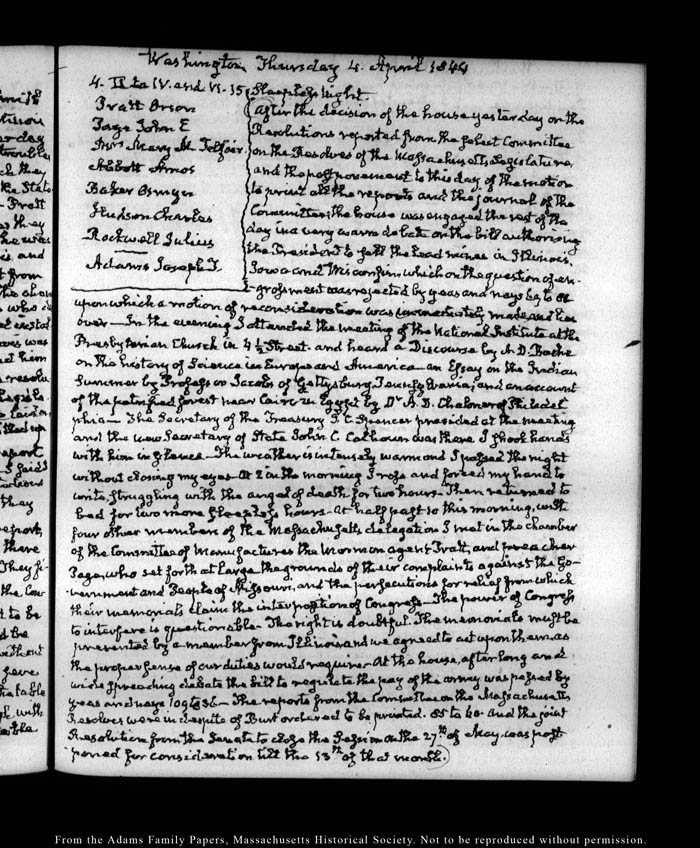 Washington Thursday 4. April 1844
4. II to IV. and VI.-15
Pratt Orson
Page John E
Mrs Mary M. Telfair
Abbott Amos
Baker Osmyn
Hudson Charles
Rockwell Julius
Adams Joseph T.
Sleepless night.
After the decision of the house yesterday on the
Resolutions reported from the select Committee
on the Resolves of the Massachusetts Legislature,
and the postponement to this day of the motion
to print all the reports and the journal of the
Committee, the house was engaged the rest of the
day in a very warm debate on the bill authorising
the President to sell the lead mines in Illinois,
Iowa and Wisconsin which on the question of en-
grossment was rejected by yeas and nays
upon which a motion of reconsideration was immediately made and lies
over — In the evening I attended the meeting of the National Institute at the
Presbyterian Church in 4½ Street. and heard a Discourse by A. D. Bache
on the history of Science in Europe and America — an Essay on the Indian
Summer by Professor Jacobs of Gettysburg Pennsylvania; and an account
of the petrified forest near Cairo in Egypt by Dr A. B. Chaloner of Philadel-
phia — The Secretary of the Treasury J. C. Spencer presided at the meeting
and the new Secretary of State John C. Calhoun was there I shook hands
with him in silence — The weather is intensely warm and I passed the night
without closing my eyes — At 2 in the morning I rose and forced my hand to
write, struggling with the angel of death for two hours — Then returned to
bed for two more sleepless hours — At half past 10 this morning, with
four other members of the Massachusetts delegation I met in the chamber
of the Committee of Manufactures the Mormon agent Pratt, and preacher
Page, who set forth at large the grounds of their complaints against the Go-
vernment and People of Missouri, and the persecutions for relief from which
their memorials claim the interposition of Congress — The power of Congress
to interfere is questionable — The right is doubtful. The memorials must be
presented by a member from Illinois and we agreed to act upon them as
the proper sense of our duties would require — At the house, after long and
wide spreading debate the bill to regulate the pay of the army was passed by
yeas and nays 109 to 56 — The reports from the Committee on the Massachusetts
Resolves were in despite of Burt ordered to be printed. 85 to 40 — and the joint
Resolution from the Senate to close the Session on the 27th of May was post-
poned for consideration till the 13th of that month.
From the Adams Family Papers, Massachusetts Historical Society. Not to be reproduced without permission.